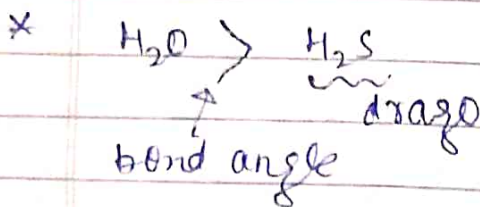 * H₂O > H₂S
drago
bond angle